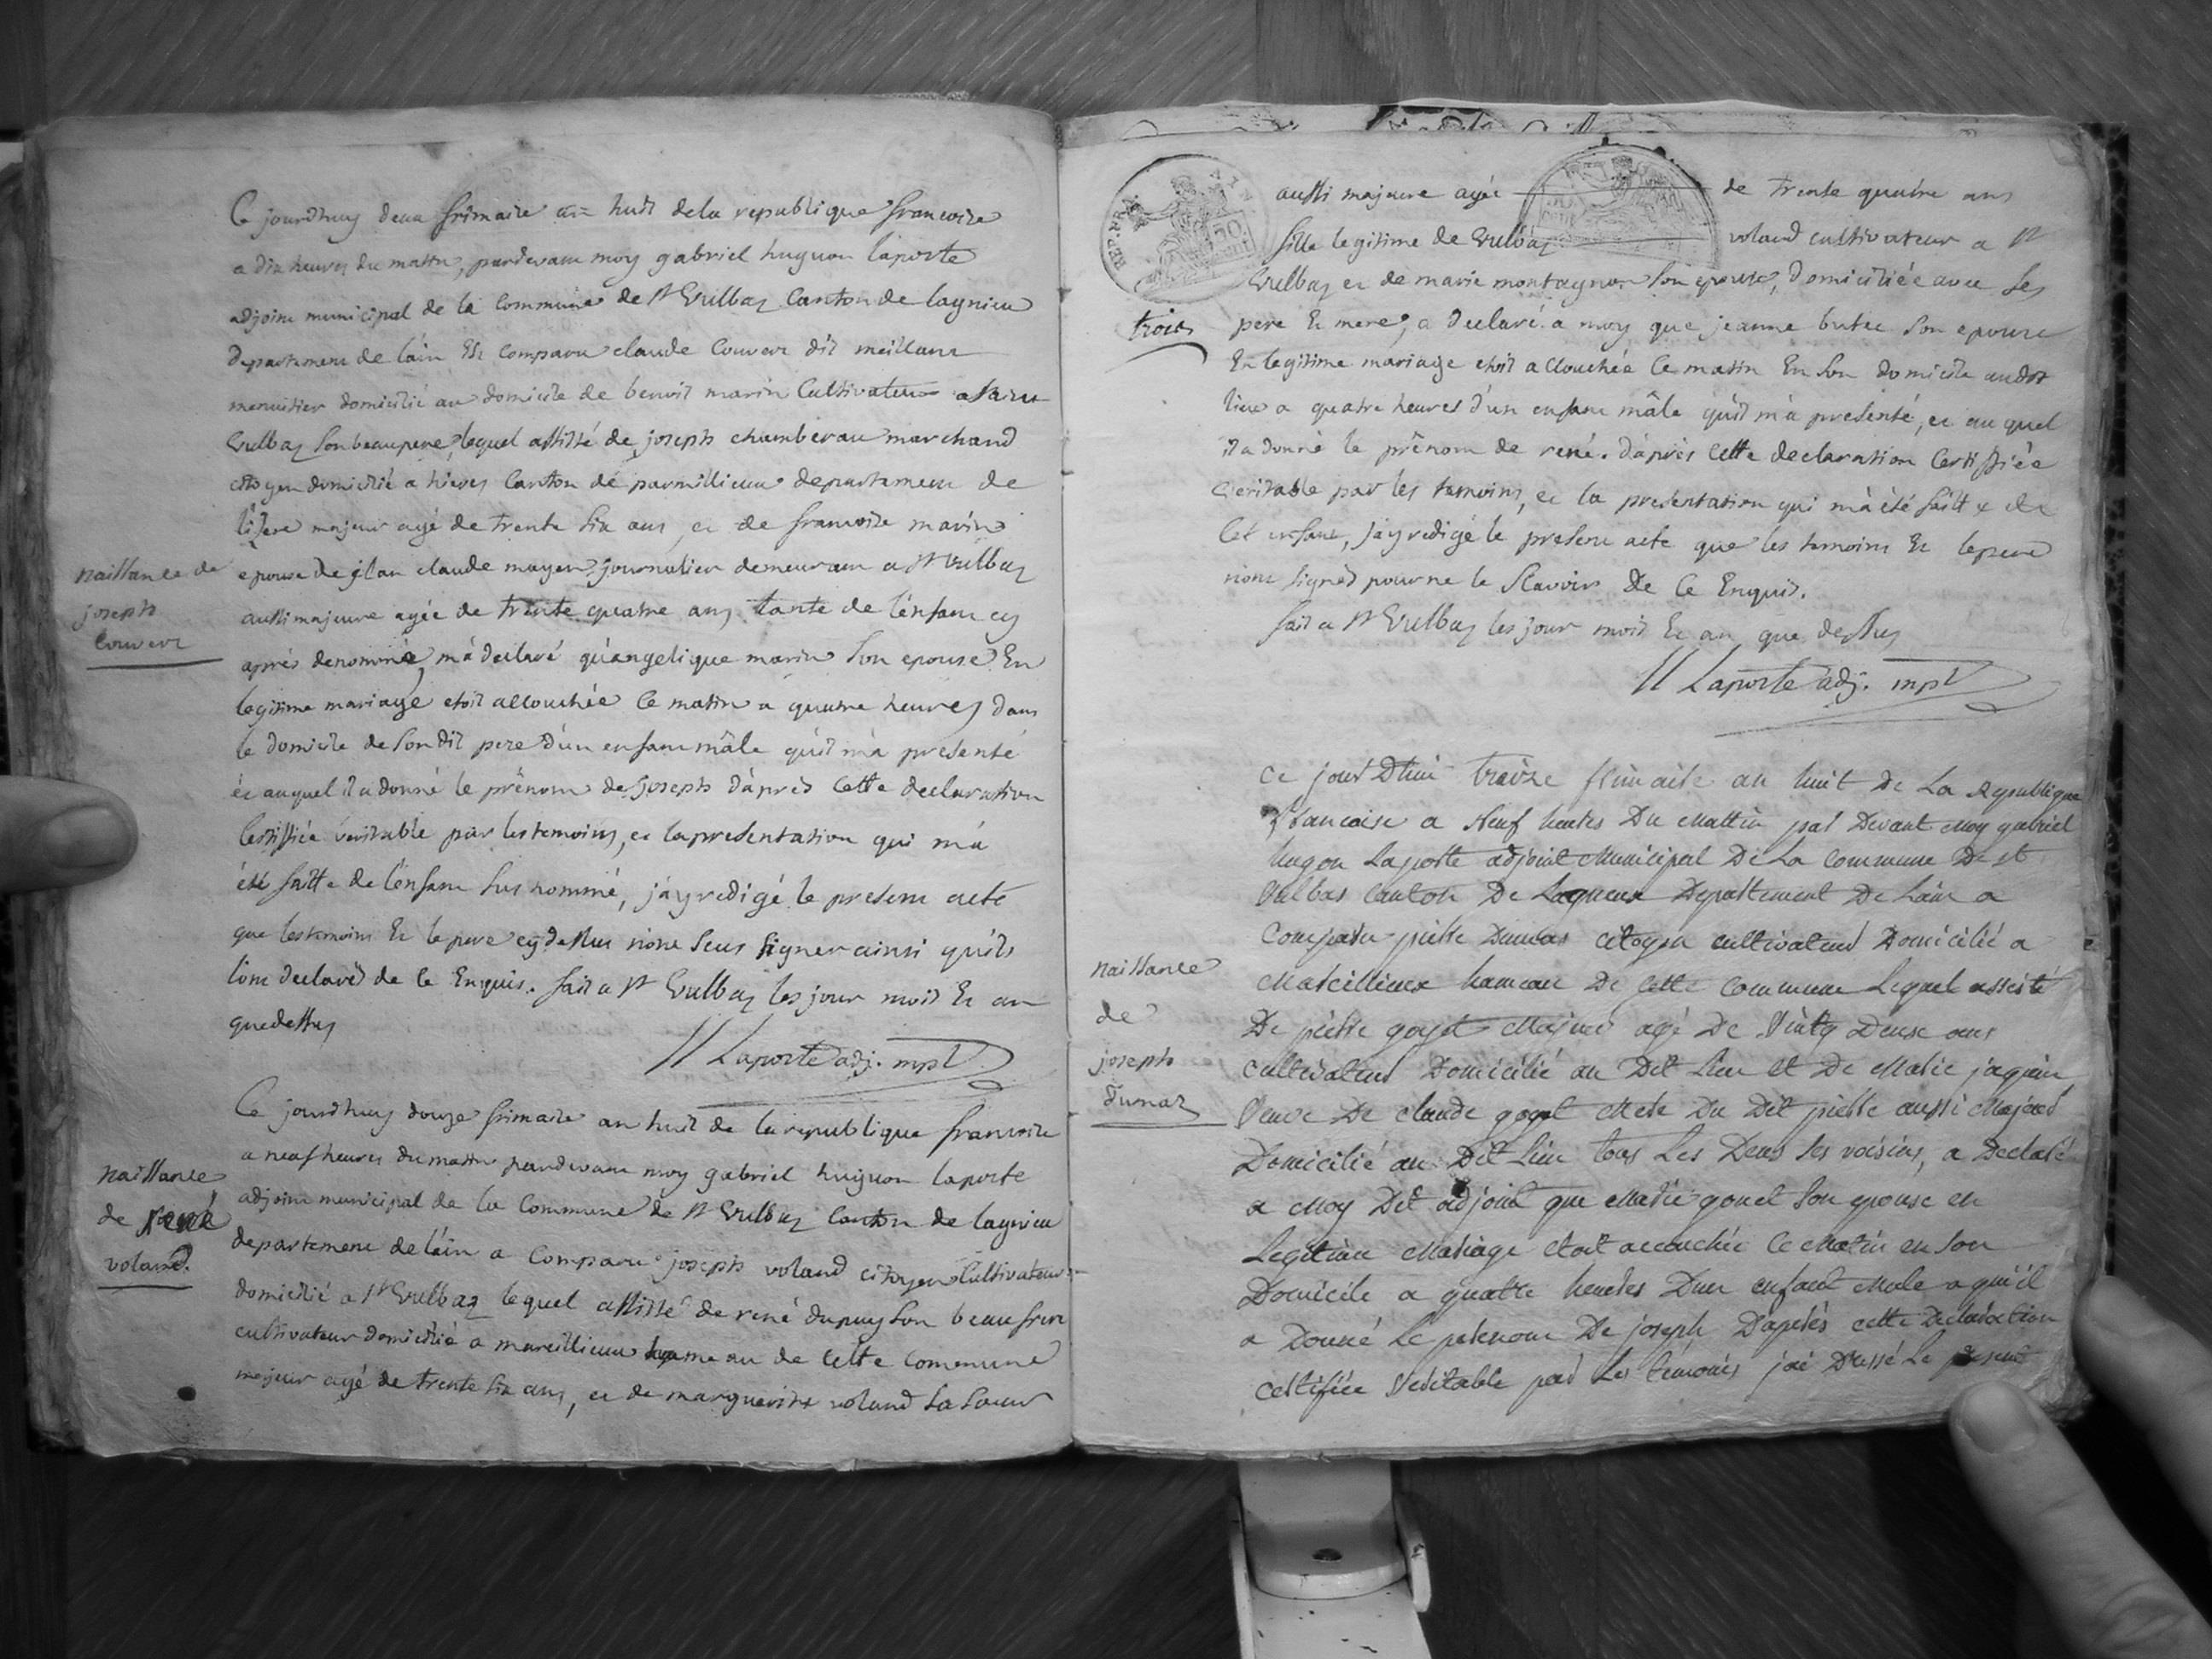 Ce jourdhuy deux frimaire an huit de la republique francoise
a dix heures du matin, pardevant moy gabriel huguon laporte
adjoint municipal de la commune de St Vulbas Canton de lagnieu
departement de l'ain Est comparu claude Couvert dit meillant
menuisier domicilié au domicile de benoit marin Cultivateur a Saint
Vulbas son beaupere, lequel assisté de joseph chamberau marchand
citoyen domicilié a hieres Canton de parmillieux departement de
l'isere majeur agé de trente six ans, et de francoise marin
epouse de jean claude mayer journalier demeurant a St Vulbas
naissance de
joseph
Couvert
aussi majeure agée de trente quatre ans, tante de l'enfant cy
aprés denommé, m'a declaré qu'angelique marin son epouse En
legitime mariage etoit accouchée ce matin a quatre heures dans
le domicile de son dit pere d'un enfant mâle qu'il m'a presenté
et auquel il a donné le prénom de joseph d'aprés cette declaration
certiffiée veritable par les temoins, et la presentation qui m'a
été faitte de l'enfant sus nommé, j'ay redigé le present acte
que les temoins Et le pere cy dessus n'ont seus signer ainsi qu'ils
l'ont declaré de ce Enquis. fait a St Vulbas les jour mois Et an
que dessus
H Laporte adj. mpl
Ce jourdhuy douze frimaire an huit de la republique francoise
a neuf heures du matin pardevant moy gabriel huguon laporte
adjoint municipal de la Commune de St Vulbas Canton de lagnieu
naissance
de rené
voland.
departement de l'ain a Comparu joseph voland citoyen Cultivateur
domicilié a St Vulbas lequel assisté de rené dupuy son beau frere
cultivateur domicilié a marcillieux hameau de cette commune
majeur agé de trente six ans, et de marguerite voland sa soeur
aussi majeure agée de trente quatre ans
fille legitime de Vulbas voland cultivateur a St
Vulbas et de marie montagnon son epouse, domiciliée avec ses
trois
pere Et mere, a declaré a moy que jeanne butet son epouse
En legitime mariage etoit accouchée ce matin En son domicile audit
lieu a quatre heures d'un enfant mâle qu'il m'a presenté, et auquel
il a donné le prénom de rené. d'aprés cette declaration certiffiée
veritable par les temoins, et la presentation qui m'a été faitte de
cet enfant, j'ay redigé le present acte que les temoins Et le pere
n'ont signés pour ne le scavoir de ce Enquis.
fait a St Vulbas les jour mois Et an que dessus
H Laporte adj. mpl
REP. FRA.
Ce jourd'hui treize frimaire an huit De La Republique
francaise a Neuf heures Du Mattin par Devant Moy gabriel
hugon Laporte adjoint Municipal De La Commune De st
Vulbas Canton De Lagnieux Departement De Lain a
Comparu pierre Dumas citoyen cultivateur Domicilié a
naissance
de
joseph
dumas
Marcillieux hameau De Cette Commune Lequel assisté
De pierre goyet Majeur agé De Vintg Deuse ans
cultivateur Domicilié au Dit Lieu et De Marie jaquin
Veuve De claude goyet Mere Du Dit pierre aussi Majeur
Domicilié au Dit Lieu tous Les Deus Ses voisins, a Declaré
a Moy Dit adjoint que Marie gonet Son epouse en
Legitime Mariage etoit accouchée Ce Matin en Son
Domicile a quatre heures Dun enfant Male a qu'il
a Donné Le prenom De joseph Daprés cette Declaration
certifiée Veritable par Les temoins jai Dressé Le present